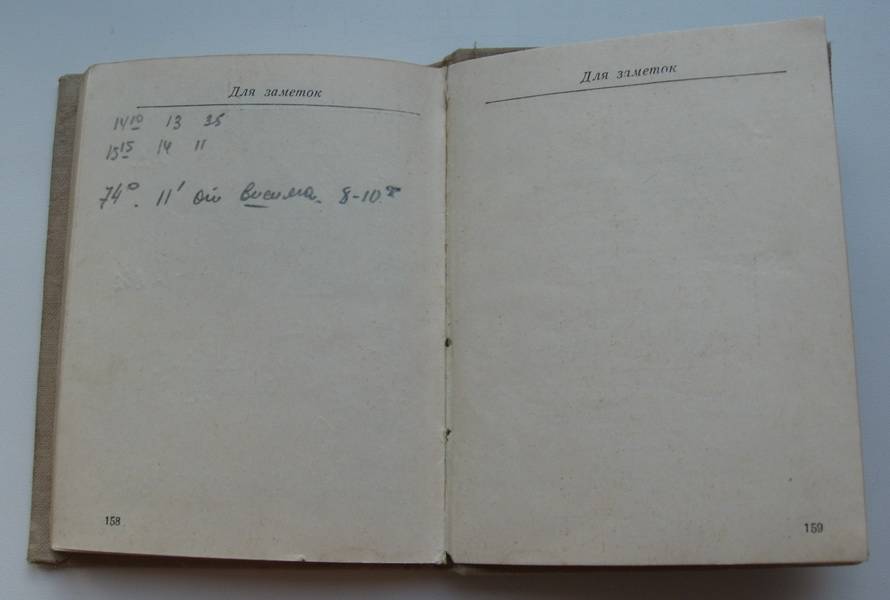 Для заметок
14¹⁰ 13 35
15¹⁵ 14 11
74°. 11' от 8-10
158
Для заметок
159